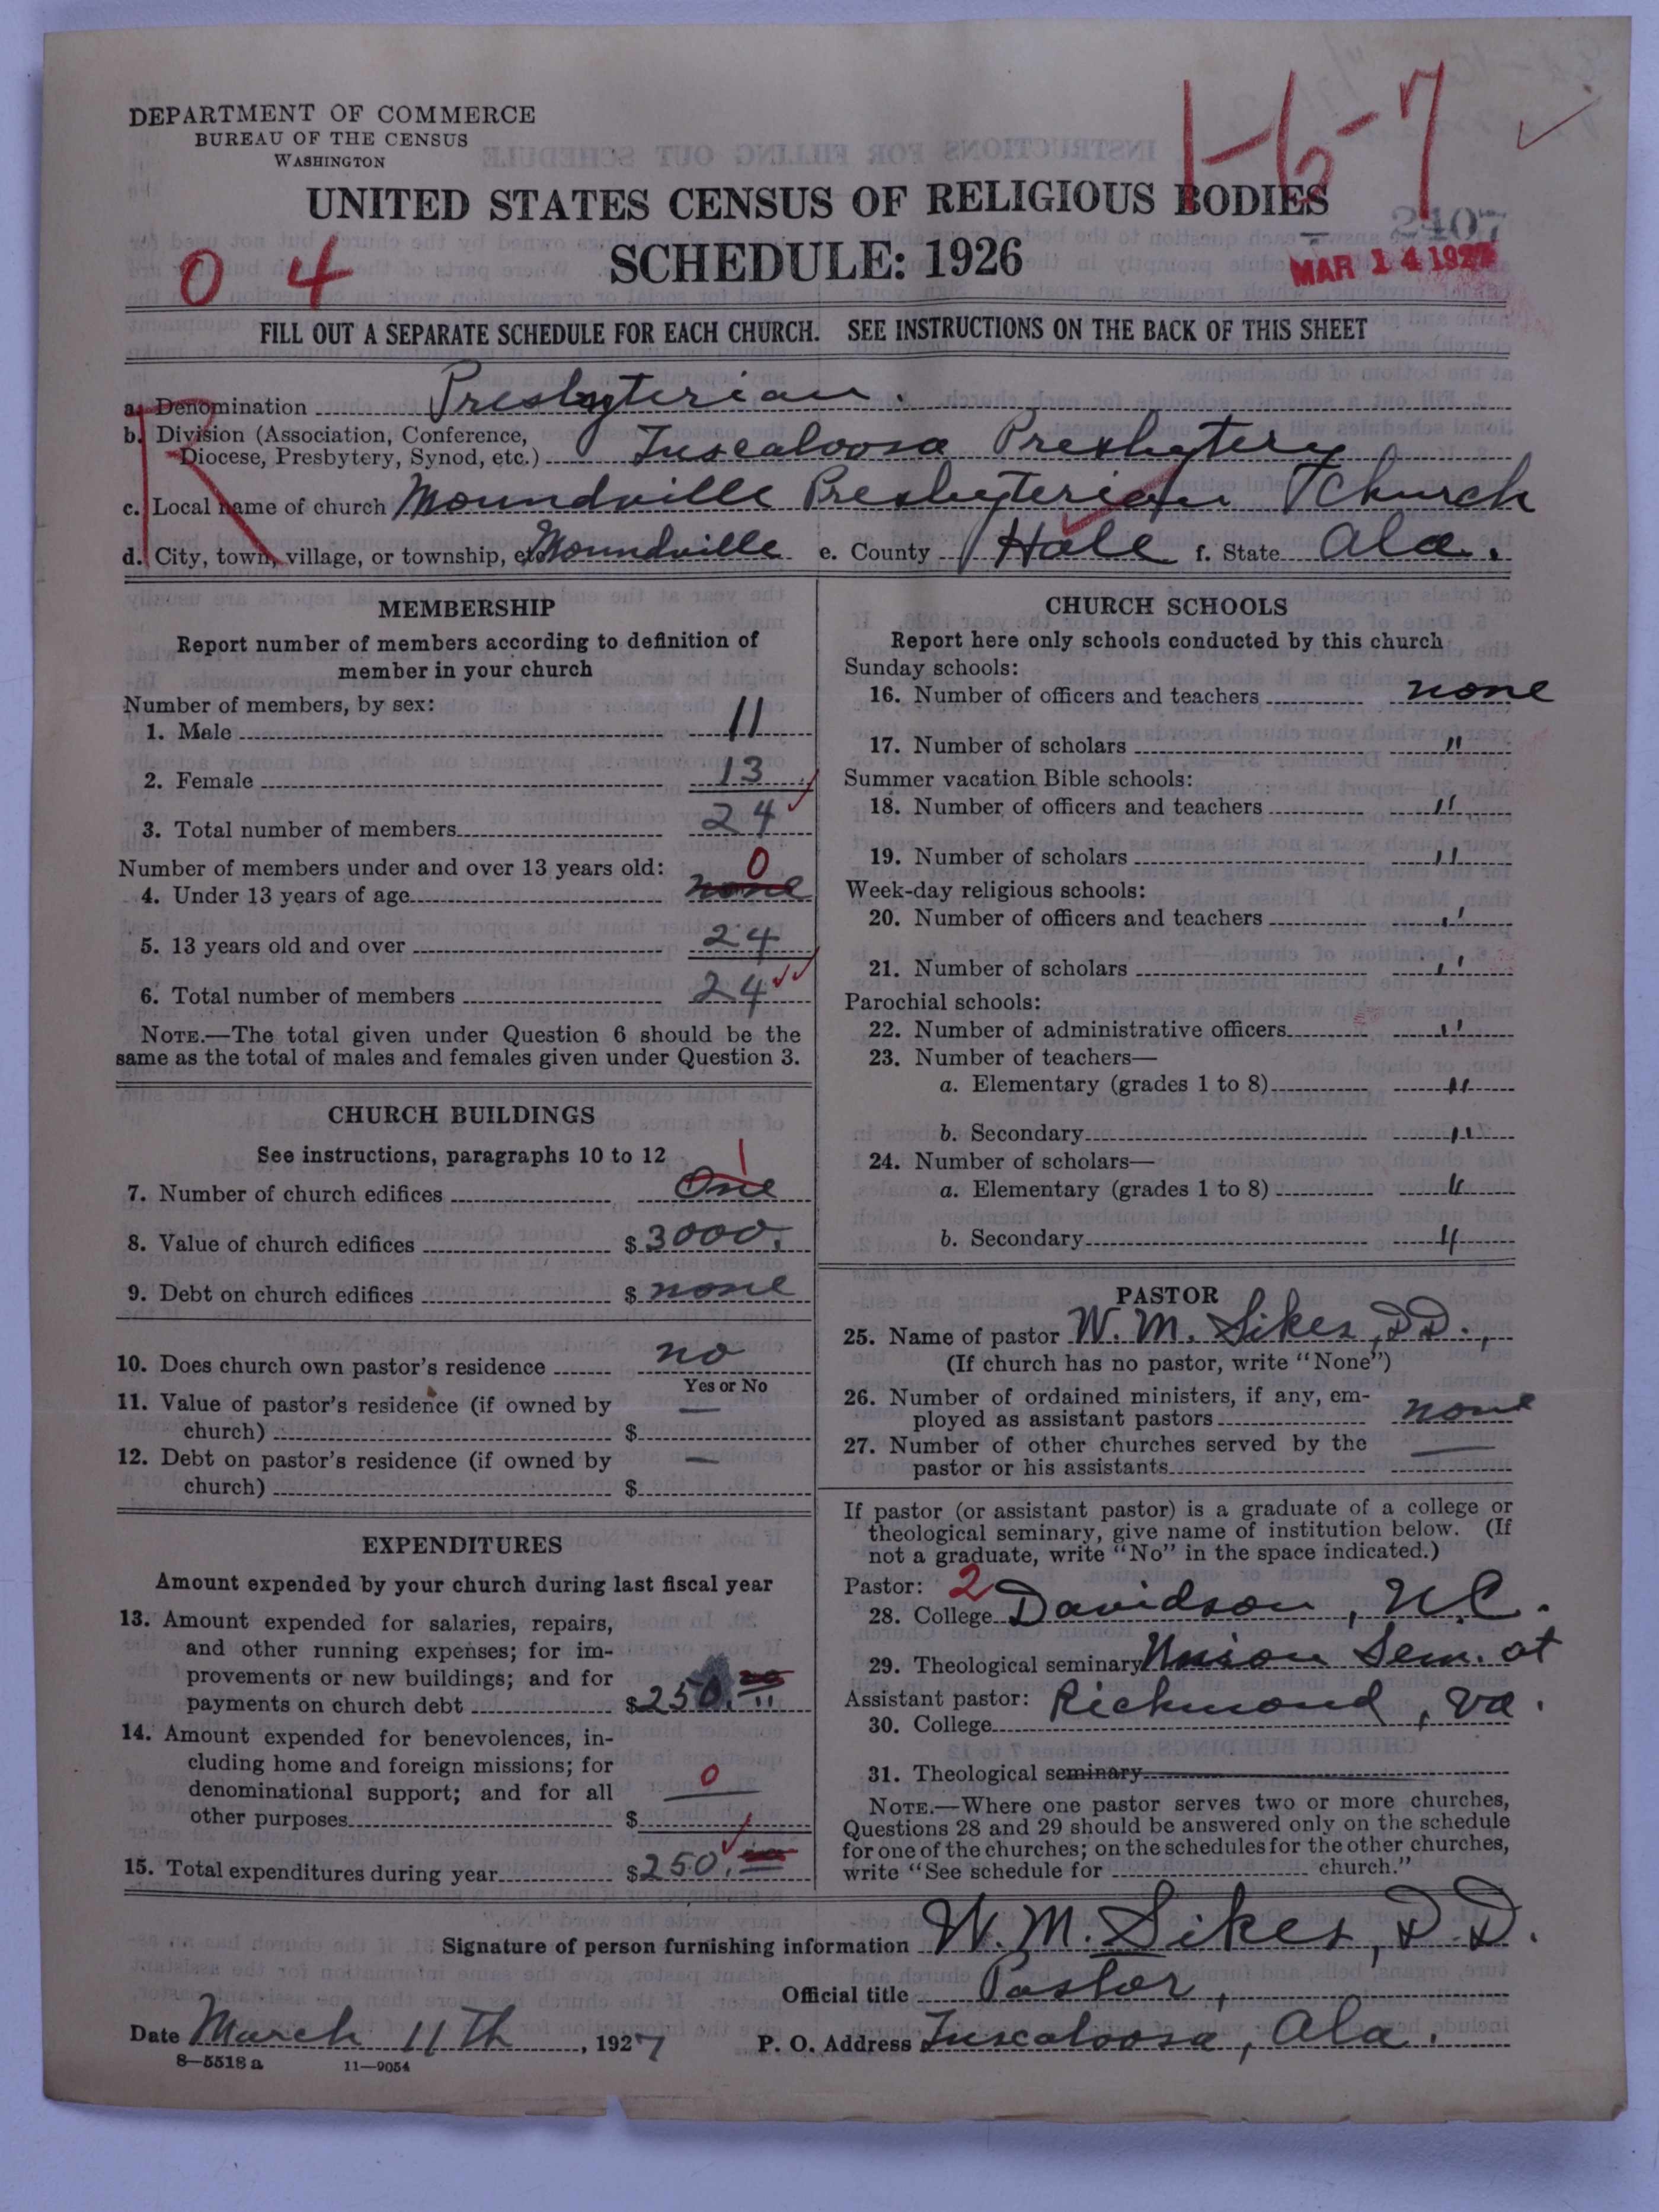 DEPARTMENT OF COMMERCE
BUREAU OF THE CENSUS
WASHINGTON
1-6-7
UNITED STATES CENSUS OF RELIGIOUS BODIES
2407
SCHEDULE: 1926
MAR 14 1927
0 4
FILL OUT A SEPARATE SCHEDULE FOR EACH CHURCH. SEE INSTRUCTIONS ON THE BACK OF THIS SHEET
R
a. Denomination Presbyterian.
b. Division (Association, Conference,
Diocese, Presbytery, Synod, etc.) Tuscaloosa Presbytery
c. Local name of church Moundville Presbyterian Church
d. City, town, village, or township, etc. Moundville e. County Hale f. State Ala.
MEMBERSHIP
Report number of members according to definition of
member in your church
Number of members, by sex:
1. Male 11
2. Female 13
3. Total number of members 24
Number of members under and over 13 years old: 0
4. Under 13 years of age none
5. 13 years old and over 24
6. Total number of members 24
NOTE.—The total given under Question 6 should be the
same as the total of males and females given under Question 3.
CHURCH BUILDINGS
See instructions, paragraphs 10 to 12 1
7. Number of church edifices One
8. Value of church edifices $ 3000.
9. Debt on church edifices $ none
10. Does church own pastor's residence no
Yes or No
11. Value of pastor's residence (if owned by —
church) $
12. Debt on pastor's residence (if owned by —
church) $
EXPENDITURES
Amount expended by your church during last fiscal year
13. Amount expended for salaries, repairs,
and other running expenses; for im-
provements or new buildings; and for
payments on church debt $ 250.
14. Amount expended for benevolences, in-
cluding home and foreign missions; for
denominational support; and for all 0
other purposes $
15. Total expenditures during year $ 250.
CHURCH SCHOOLS
Report here only schools conducted by this church
Sunday schools:
16. Number of officers and teachers none
17. Number of scholars "
Summer vacation Bible schools:
18. Number of officers and teachers "
19. Number of scholars "
Week-day religious schools:
20. Number of officers and teachers "
21. Number of scholars "
Parochial schools:
22. Number of administrative officers "
23. Number of teachers—
a. Elementary (grades 1 to 8) "
b. Secondary "
24. Number of scholars—
a. Elementary (grades 1 to 8) "
b. Secondary "
PASTOR
25. Name of pastor W. M. Sikes, D.D.,
(If church has no pastor, write "None")
26. Number of ordained ministers, if any, em-
ployed as assistant pastors none
27. Number of other churches served by the —
pastor or his assistants
If pastor (or assistant pastor) is a graduate of a college or
theological seminary, give name of institution below. (If
not a graduate, write "No" in the space indicated.)
Pastor: 2
28. College Davidson, N.C.
29. Theological seminary Union Sem. at
Assistant pastor: Richmond, Va.
30. College
31. Theological seminary
NOTE.—Where one pastor serves two or more churches,
Questions 28 and 29 should be answered only on the schedule
for one of the churches; on the schedules for the other churches,
write "See schedule for church."
Signature of person furnishing information W. M. Sikes, D.D.
Official title Pastor,
Date March 11th, 1927 P. O. Address Tuscaloosa, Ala.
8—5518 a 11—9054